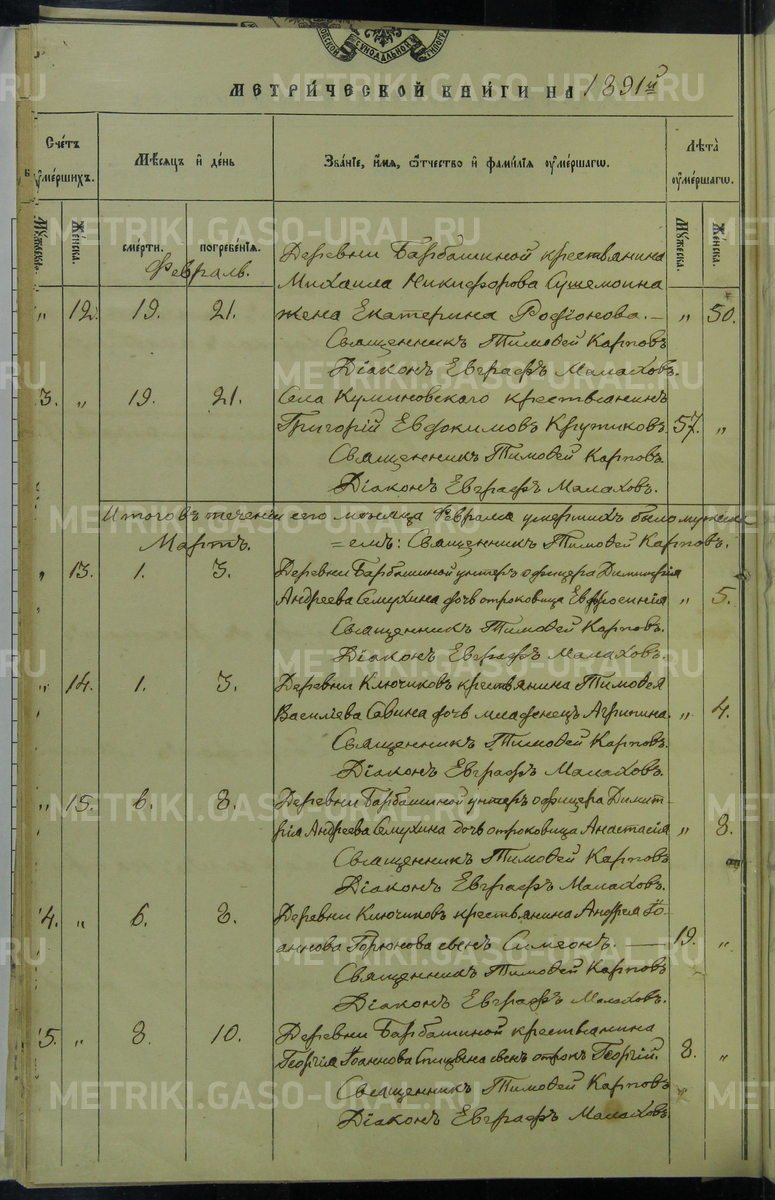 МЕТРИ́ЧЕСКОЙ КНИ́ГИ НА 1891й
Счетъ оумершихъ.
Мѣсяцъ и день
Званіе, имя, отчество и фамилія оумершаго.
Лѣта оумершаго.
Мужеска. Женска. смерти. погребенія. Мужеска. Женска.
Февраль.
Деревни Барбашиной крестьянина
Михаила Никифорова Сушемоина
„ 12. 19. 21. жена Екатерина Родіонова. „ 50.
Священникъ Тимоѳей Карповъ
Діаконъ Евграфъ Малаховъ.
3. „ 19. 21. Села Куминовскаго крестьянинъ
Григорій Евдокимовъ Крутиковъ. 57. „
Священникъ Тимоѳей Карповъ.
Діаконъ Евграфъ Малаховъ.
Итого въ теченіи сего мѣсяца Февраля умершихъ было мужеска
Мартъ. Священникъ Тимоѳей Карповъ.
„ 13. 1. 3. Деревни Барбашиной унтеръ офицера Димитрія
Андреева Семухина дочь отроковица Евфросинія „ 5.
Священникъ Тимоѳей Карповъ.
Діаконъ Евграфъ Малаховъ.
„ 14. 1. 3. Деревни Ключиковъ крестьянина Тимоѳея
Василіева Савина дочь младенецъ Агрипина. „ 4.
Священникъ Тимоѳей Карповъ.
Діаконъ Евграфъ Малаховъ.
„ 15. 6. 8. Деревни Барбашиной унтеръ офицера Димит-
рія Андреева Семухина дочь отроковица Анастасія „ 8.
Священникъ Тимоѳей Карповъ
Діаконъ Евграфъ Малаховъ.
4. „ 6. 8. Деревни Ключиковъ крестьянина Андрея Іо-
аннова Горюнова сынъ Симеонъ. 19. „
Священникъ Тимоѳей Карповъ
Діаконъ Евграфъ Малаховъ.
5. „ 8. 10. Деревни Барбашиной крестьянина
Георгія Іоаннова Спицына сынъ отрокъ Георгій. 8. „
Священникъ Тимоѳей Карповъ
Діаконъ Евграфъ Малаховъ.
METRIKI.GASO-URAL.RU